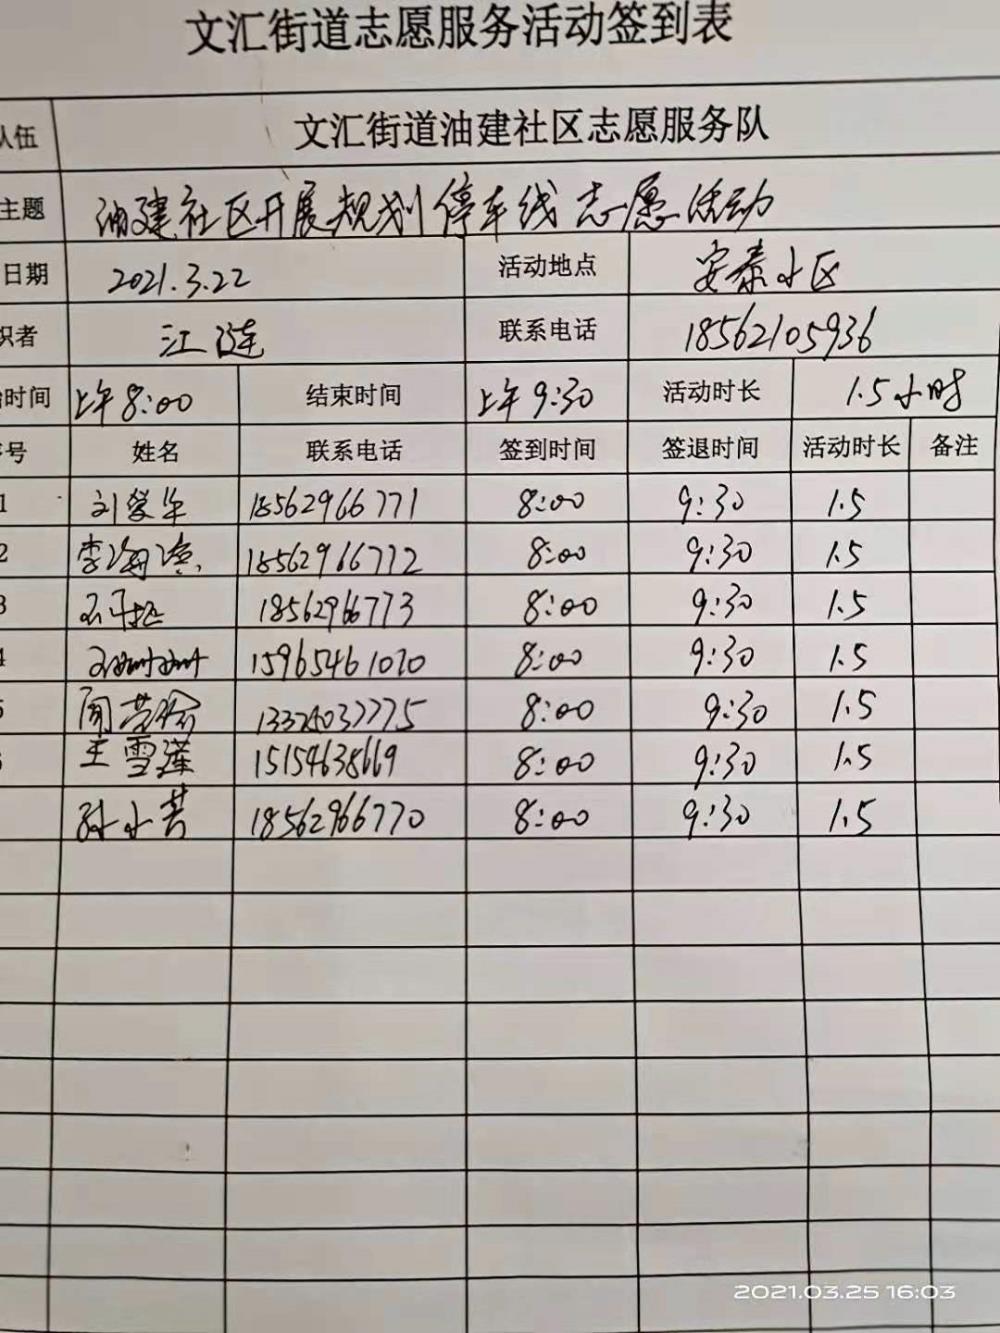 文汇街道志愿服务活动签到表
队伍 文汇街道油建社区志愿服务队
主题 油建社区开展规划停车线志愿活动
日期 2021.3.22 活动地点 安泰小区
织者 江涟 联系电话 18562105936
始时间 上午8:00 结束时间 上午9:30 活动时长 1.5小时
序号 姓名 联系电话 签到时间 签退时间 活动时长 备注
1 刘爱华 18562966771 8:00 9:30 1.5
2 18562966772 8:00 9:30 1.5
3 18562966773 8:00 9:30 1.5
4 15965461070 8:00 9:30 1.5
5 8:00 9:30 1.5
王雪莲 15154638669 8:00 9:30 1.5
孙小芳 18562966770 8:00 9:30 1.5
2021.03.25 16:03